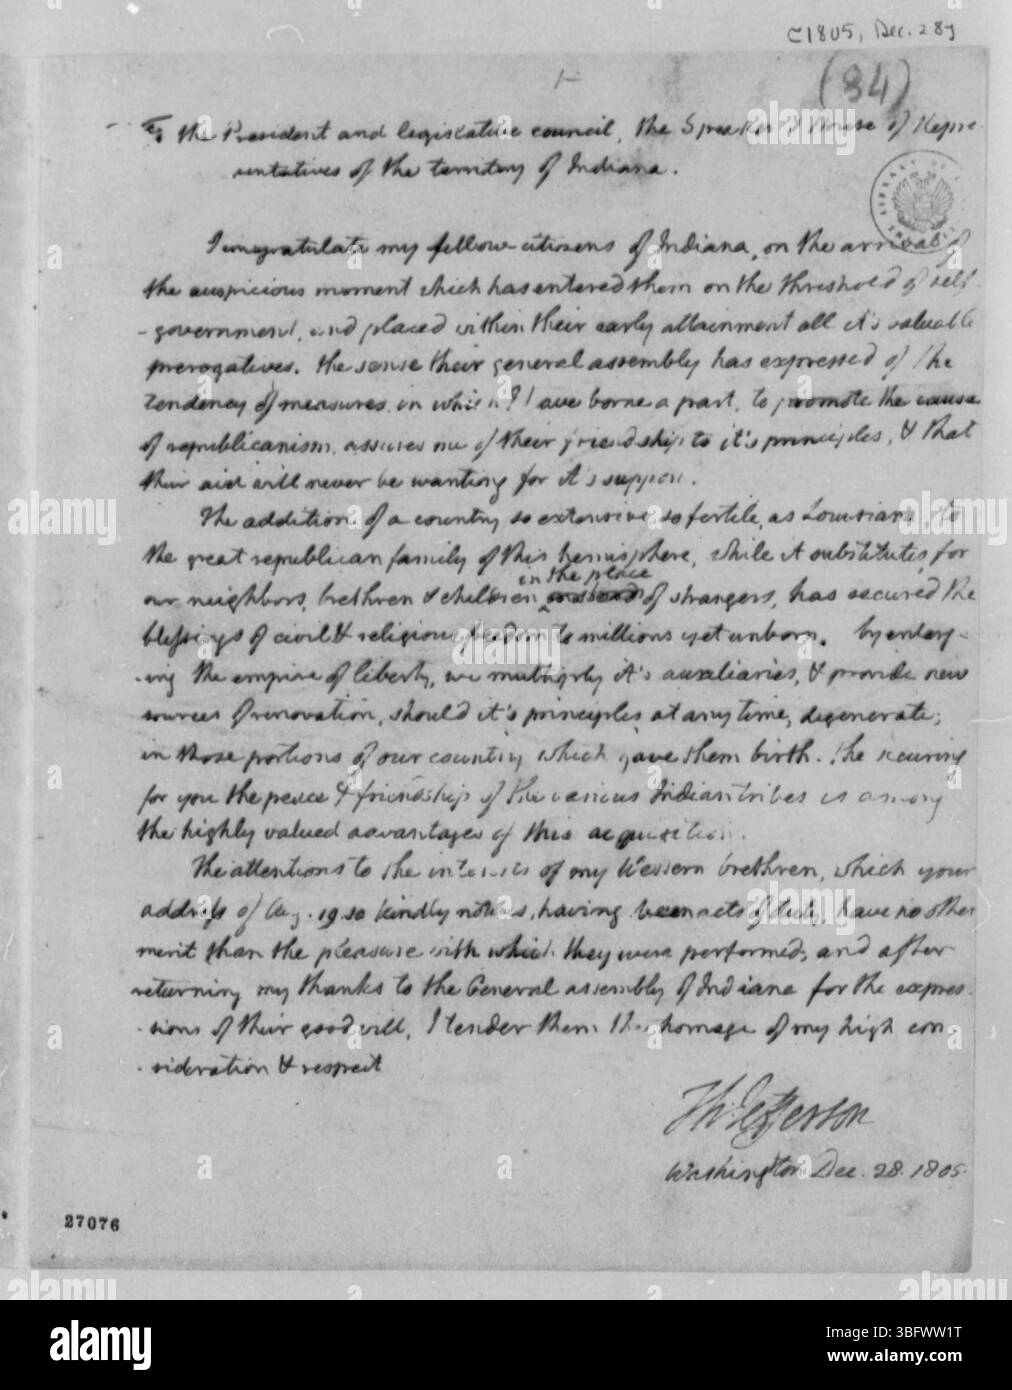 [1805, Dec. 28]
(34)
To the President and legislative council, the Speaker & House of Repre-
sentatives of the territory of Indiana.
I congratulate my fellow-citizens of Indiana, on the arrival of
the auspicious moment which has entered them on the threshold of self-
-government, and placed within their early attainment all it's valuable
prerogatives. the sense their general assembly has expressed of the
tendency of measures, in which I have borne a part, to promote the cause
of republicanism, assures me of their friendship to it's principles, & that
their aid will never be wanting for it's support.
The addition of a country so extensive, so fertile, as Louisiana, to
the great republican family of this hemisphere, while it substitutes, for
in the place
our neighbors, brethren & children of strangers, has secured the
blessings of civil & religious freedom to millions yet unborn. By enlarg-
-ing the empire of liberty, we multiply it's auxiliaries, & provide new
sources of renovation, should it's principles at any time, degenerate,
in those portions of our country which gave them birth. the securing
for you the peace & friendship of the various Indian tribes is among
the highly valued advantages of this acquisition.
The attentions to the interests of my Western brethren, which your
address of Aug. 19. so kindly notices, having been acts of duty, have no other
merit than the pleasure with which they were performed; and after
returning my thanks to the General assembly of Indiana for the expres-
-sions of their good will, I tender them the homage of my high con-
-sideration & respect
Th: Jefferson
Washington Dec. 28. 1805.
27076
alamy
Image ID: 3BFWW1T
www.alamy.com